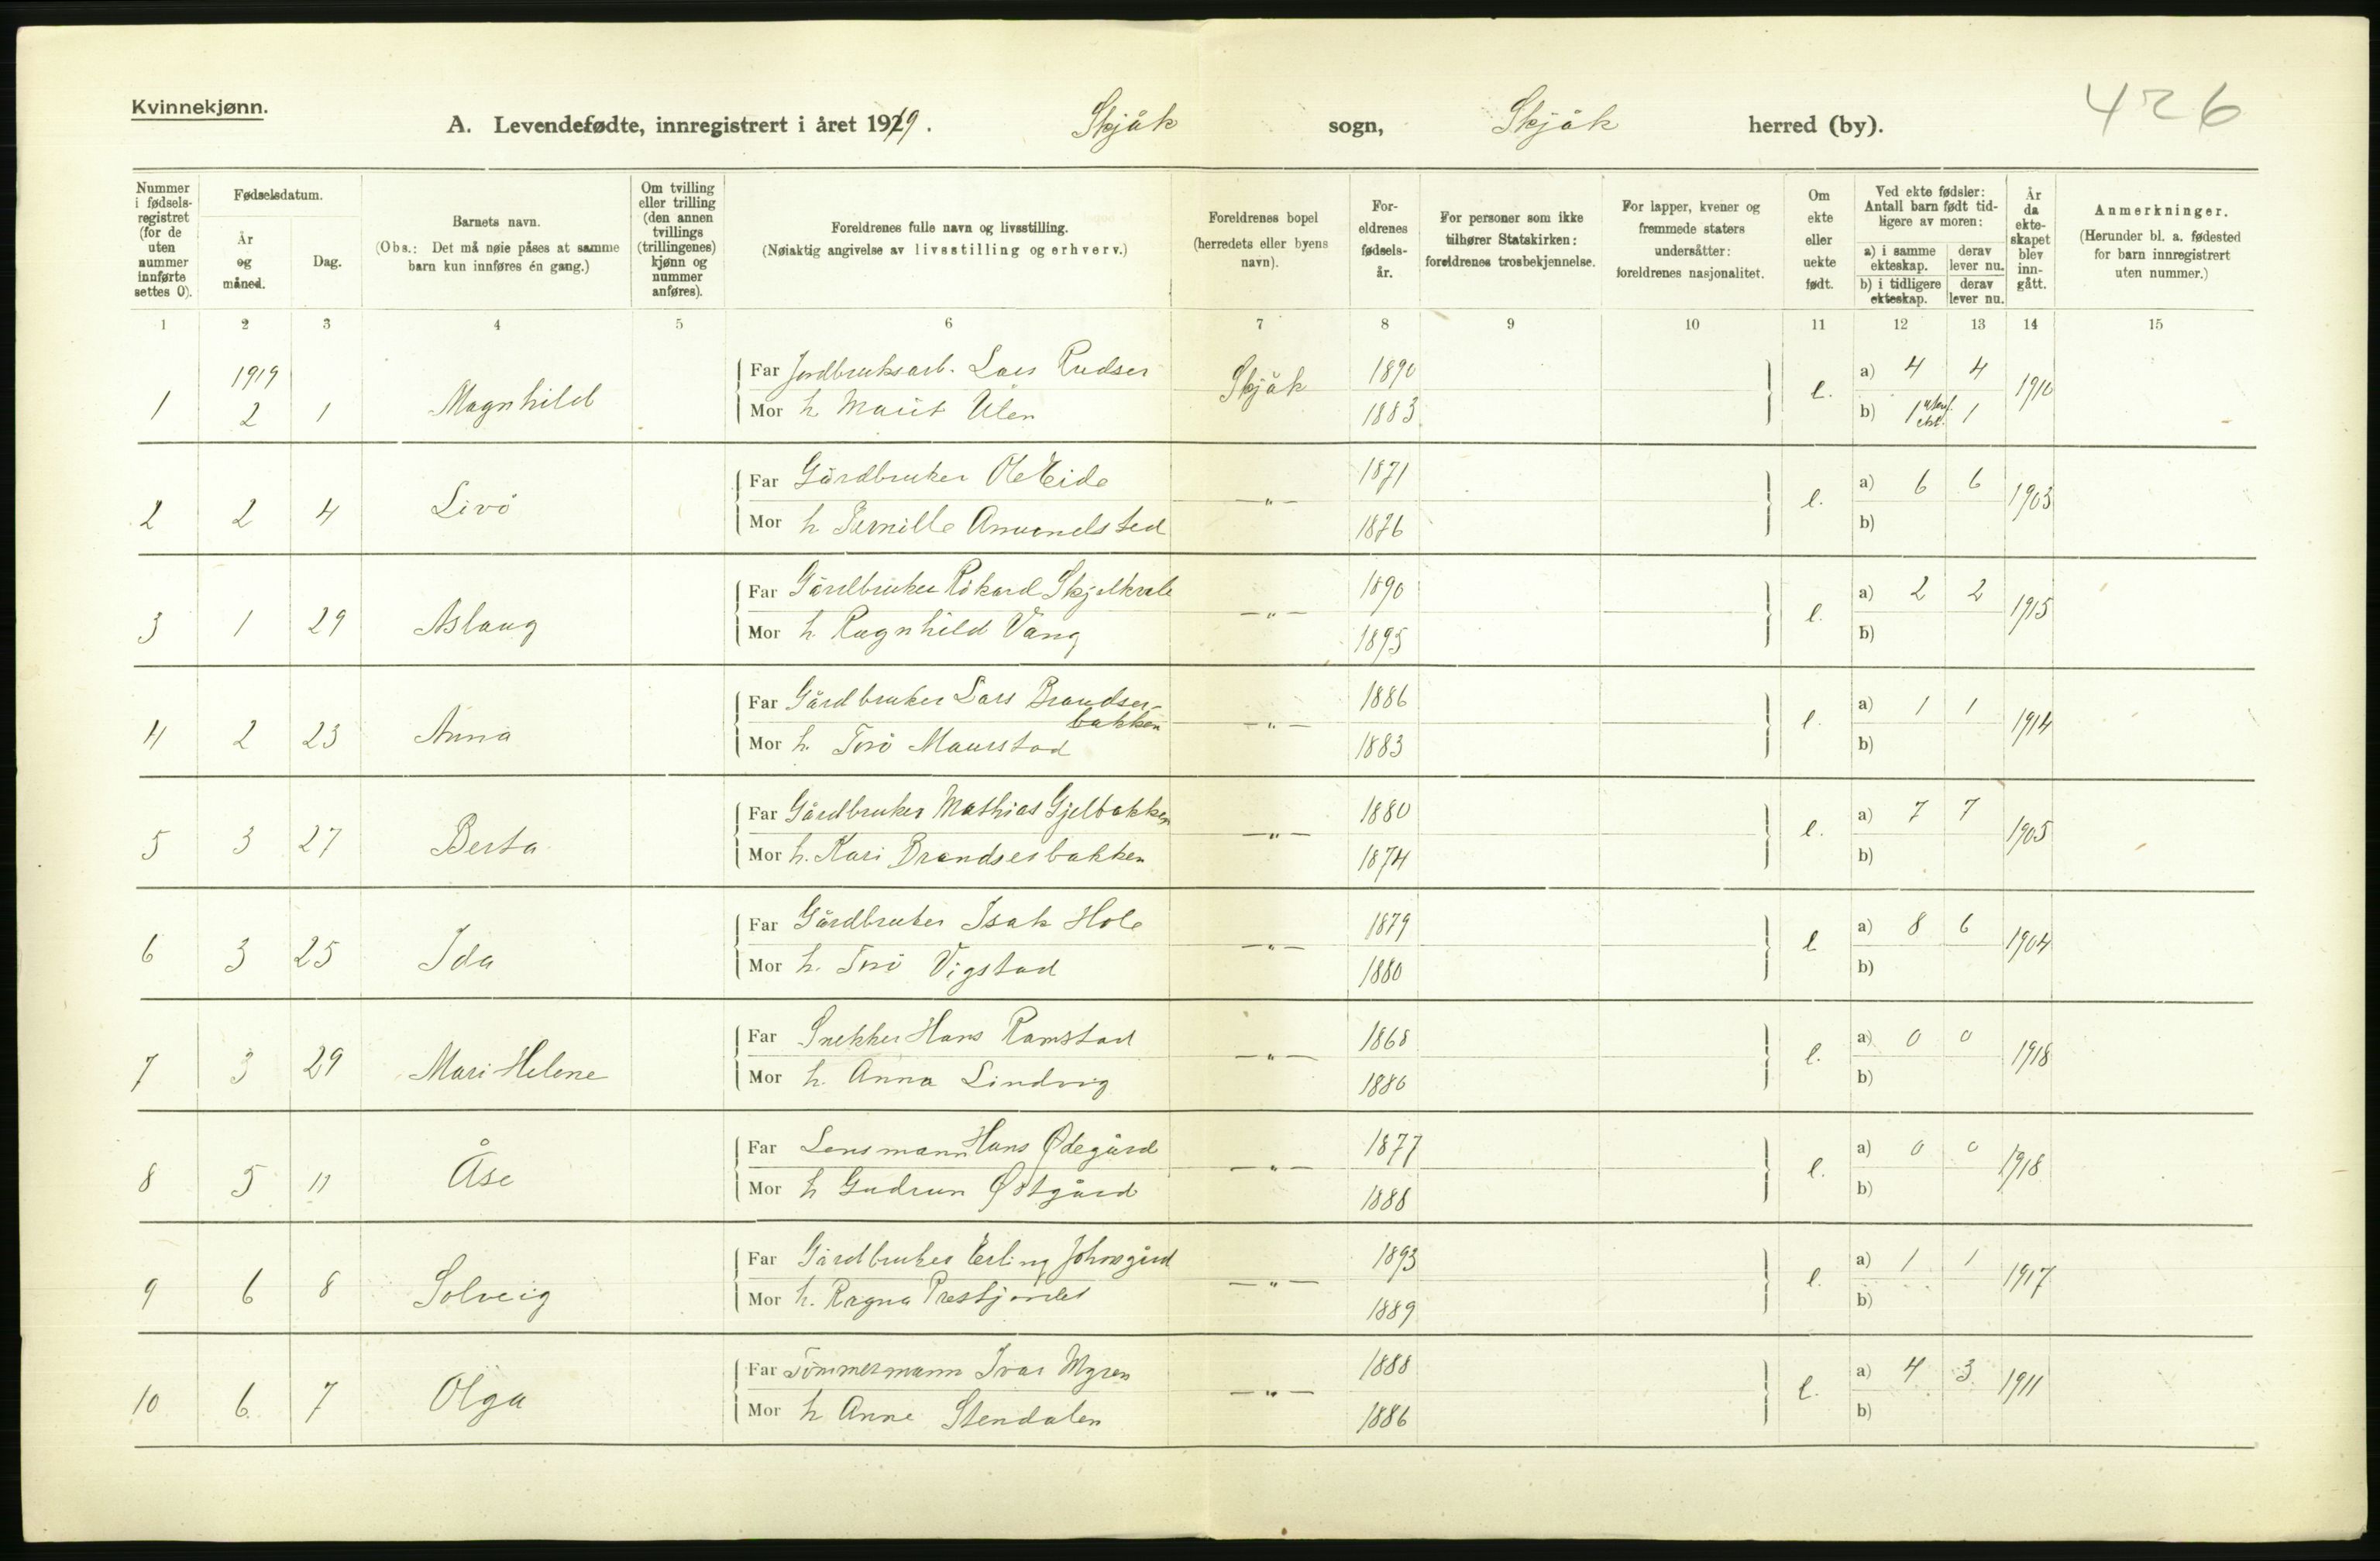 Kvinnekjønn.
A. Levendefødte, innregistrert i året 1919. Skjåk sogn, Skjåk herred (by).
426
Nummer i fødselsregistret (for de uten nummer innførte settes 0).
Fødselsdatum.
År og måned.
Dag.
Barnets navn.
(Obs.: Det må nøie påses at samme barn kun innføres én gang.)
Om tvilling eller trilling (den annen tvillings (trillingenes) kjønn og nummer anføres).
Foreldrenes fulle navn og livsstilling.
(Nøiaktig angivelse av livsstilling og erhverv.)
Foreldrenes bopel (herredets eller byens navn).
Foreldrenes fødselsår.
For personer som ikke tilhører Statskirken: foreldrenes trosbekjennelse.
For lapper, kvener og fremmede staters undersåtter: foreldrenes nasjonalitet.
Om ekte eller uekte født.
Ved ekte fødsler: Antall barn født tidligere av moren:
a) i samme ekteskap. derav lever nu.
b) i tidligere ekteskap. derav lever nu.
År da ekteskapet blev inngått.
Anmerkninger.
(Herunder bl. a. fødested for barn innregistrert uten nummer.)
1 2 3 4 5 6 7 8 9 10 11 12 13 14 15
1919
Far Jordbruksarb. Lars Rudser 1890 a) 4 4
1 2 1 Magnhild Skjåk e. 1910
Mor h Marit Ulen 1883 b) 1 1
Far Gårdbruker Ole Eide 1871 a) 6 6
2 2 4 Livö —"— e. 1903
Mor h Pernille Amundstad 1876 b)
Far Gårdbruker Rikard Skjelkvale 1890 a) 2 2
3 1 29 Aslaug —"— e. 1915
Mor h. Ragnhild Vang 1895 b)
Far Gårdbruker Lars Brandser-
bakken 1886 a) 1 1
4 2 23 Anna —"— e. 1914
Mor h. Torö Maurstad 1883 b)
Far Gårdbruker Mathias Gjelbakken 1880 a) 7 7
5 3 27 Berta —"— e. 1905
Mor h. Kari Brandserbakken 1874 b)
Far Gårdbruker Isak Hole 1879 a) 8 6
6 3 25 Ida —"— e 1904
Mor h. Torö Vigstad 1880 b)
Far Snekker Hans Ramstad 1868 a) 0 0
7 3 29 Mari Helene —"— e. 1918
Mor h. Anna Lindvig 1880 b)
Far Lensmann Hans Ødegård 1877 a) 0 0
8 5 11 Åse —"— e. 1918
Mor h Gudrun Østgård 1888 b)
Far Gårdbruker Erling Johnsgård 1893 a) 1 1
9 6 8 Solveig —"— e. 1917
Mor h. Ragna Prestjordet 1889 b)
Far Tömmermann Ivar Myren 1888 a) 4 3
10 6 7 Olga —"— e. 1911
Mor h Anne Stendalen 1886 b)